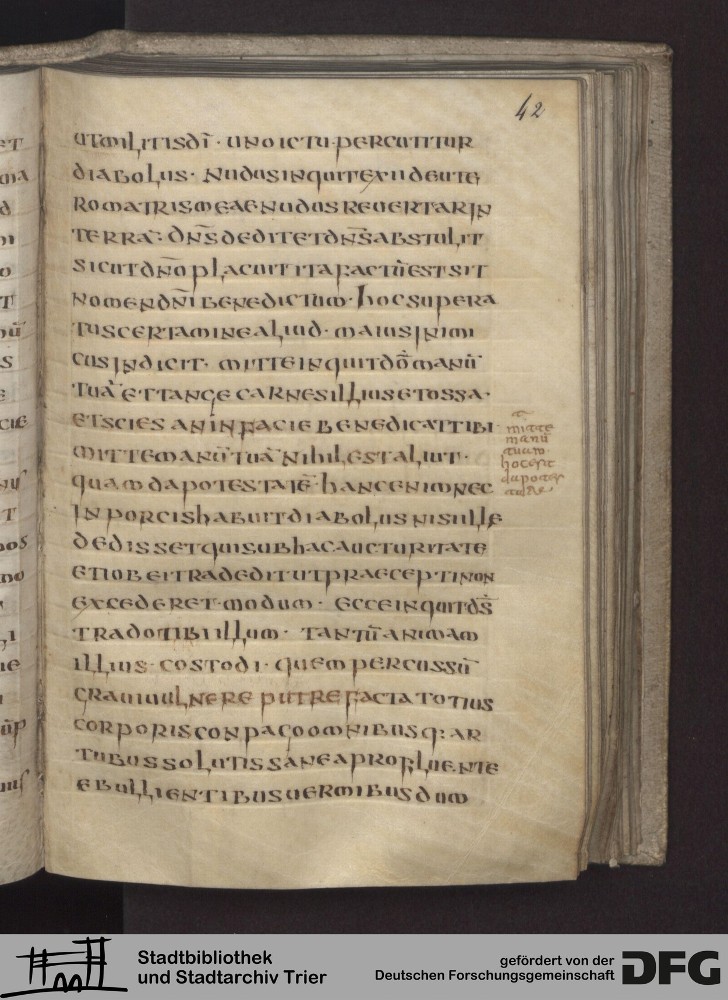 42
utmilitisdī · unoictu·percutitur
diabolus · Nudusinquitexiideute
Romatrismeaenudusreuertarin
terrā· dn̄sdeditetdn̄sabstulit
sicutdn̄oplacuititafactūestsit
nomendn̄ibenedictum · hocsupera
tuscertaminealiud · maiusinimi
cusindicit · mitteinquitdōmanū
tuā ettangecarnesilliusetossa ·
etsciesaninfaciebenedicattibi ·
mittemanūtuā nihilestaliut ·
quamdapotestatē hancenimnec
inporcishabuitdiabolusnisiille
dedissetquisubhacaucturitate
etiobeitradeditutpraeceptinon
excederet·modum · ecceinquitdn̄s
tradotibiillum · tantūanimam
illius·costodi · quempercussū
grauiuulnereputrefactatotius
corporisconpagoomnibusq: ar
tubussolutissaneaprofluente
ebullientibusuermibusdum
mitte
manū
tuam
hocest
dapotes
tatē
Stadtbibliothek
und Stadtarchiv Trier
gefördert von der
Deutschen Forschungsgemeinschaft
DFG